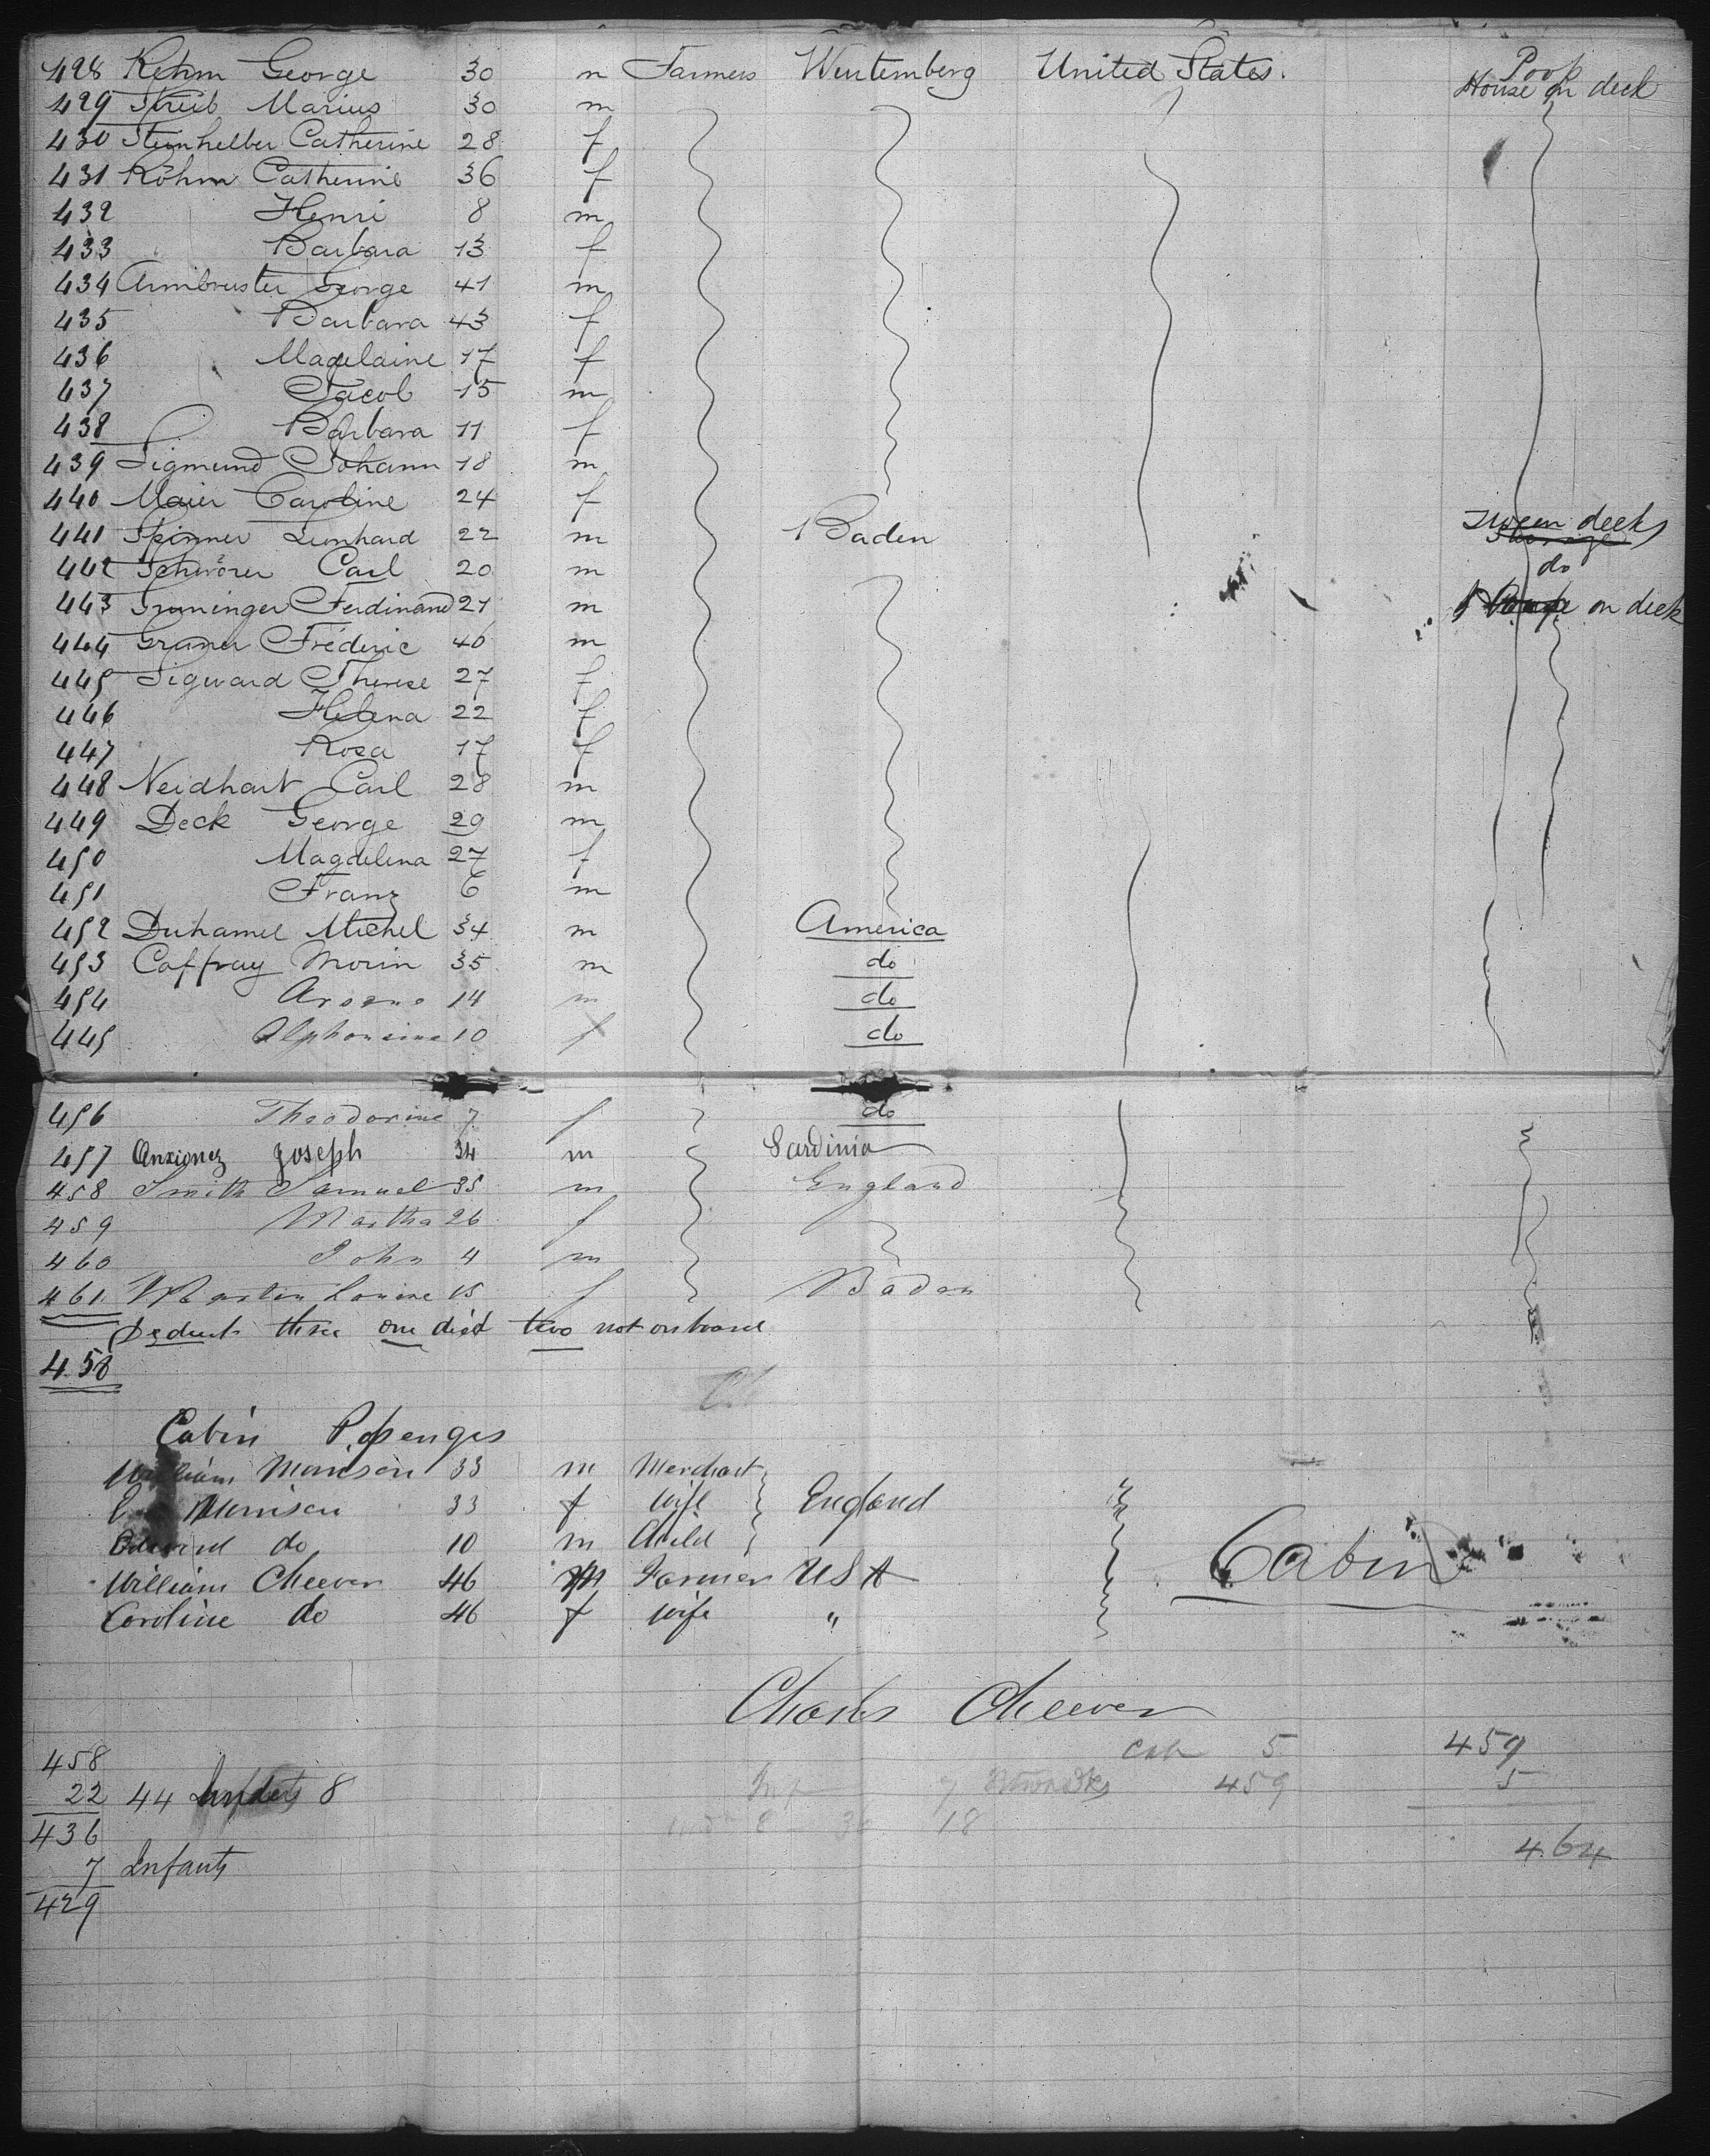 428 Rehm George 30 m Farmers Wurtemberg United States. Poop House on deck
429 Streib Marius 30 m
430 Steinhelber Catherine 28 f
431 Röhm Catherine 36 f
432 Henri 8 m
433 Barbara 13 f
434 Armbruster George 41 m
435 Barbara 43 f
436 Magelaine 17 f
437 Jacob 15 m
438 Barbara 11 f
439 Sigmund Johann 18 m
440 Maier Caroline 24 f
441 Spinner Leonhard 22 m Baden Tween decks
442 Schwörer Carl 20 m do
443 Gruninger Ferdinand 21 m on deck
444 Graner Fréderic 40 m
445 Sigward Therese 27 f
446 Helena 22 f
447 Rosa 17 f
448 Neidhart Carl 28 m
449 Deck George 29 m
450 Magdelena 27 f
451 Franz 6 m
452 Duhamel Michel 34 m America
453 Caffray Morin 35 m do
454 Arsene 14 m do
445 Alphonsine 10 f do
456 Theodorine 7 f do
457 Anxionnz Joseph 34 m Sardinia
458 Smith Samuel 35 m England
459 Martha 26 f
460 John 4 m
461. Martin Louise 15 f Baden
Deduct three one died two not on board
458
Cabin Passenges
William Morrison 33 m Merchant
Morrison 33 f wife England
do 10 m Child
William Cheever 46 m Farmer USA Cabin
Caroline do 46 f wife "
Charles Cheever
Cab 5 459
458
22 44 8 Inf 7 459 5
436 8 36 18 464
7 Infants
429